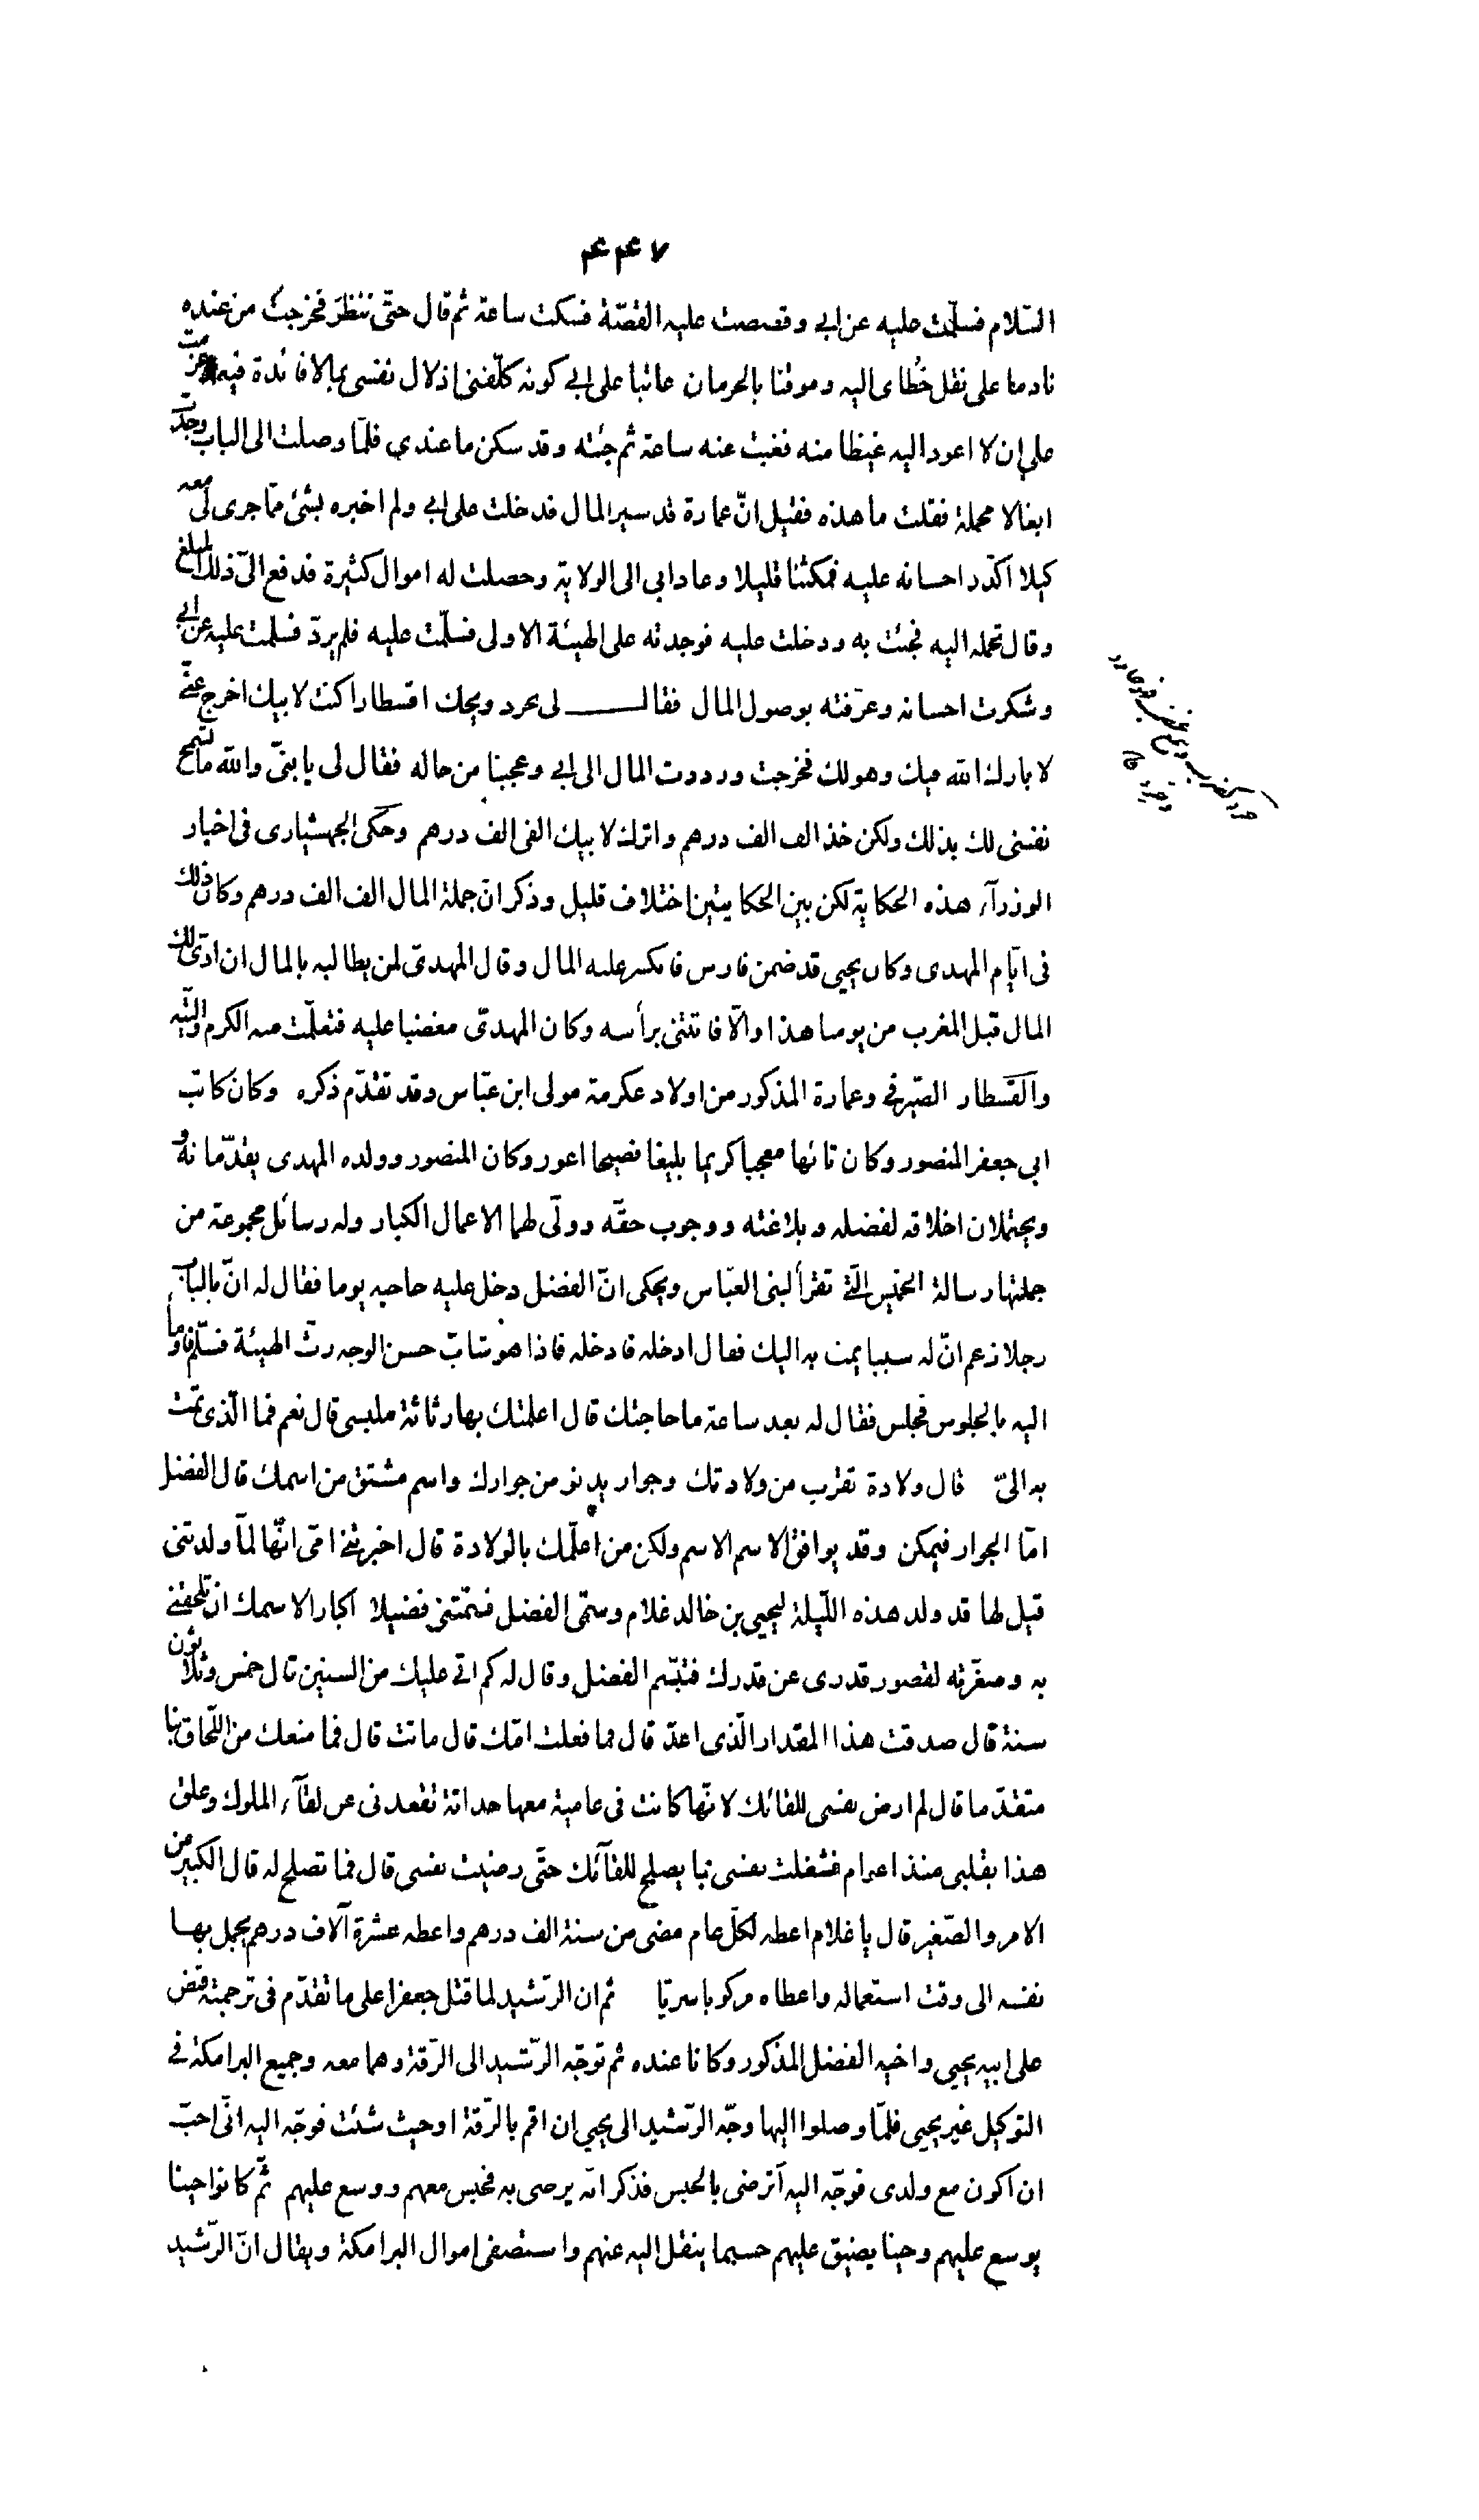 ٤٤٧
السّلام فسلّمت عليه عن ابى وقصصت عليه القصّة فسكت ساعة ثم قال حتّى ننظر فخرجت من عنده
نادما على نقل خطاى اليه وموقنا بالحرمان عاتبا على ابى كونه كلّفنى اذلال نفسى بما لا فائدة فيه وعزمت
على ان لا اعود اليه غيظا منه فغبت عنه ساعة ثم جئته وقد سكن ما عندي فلمّا وصلت الى الباب وجدت
ابغالا محملة فقلت ما هذه فقيل انّ عمارة قد سير المال فدخلت على ابى ولم اخبره بشئ ممّا جرى لى معه
كيلا اكدّر احسانه عليه فمكثنا قليلا وعاد ابى الى الولاية وحصلت له اموال كثيرة فدفع الىّ ذلك المبلغ
وقال تحمله اليه فجئت به ودخلت عليه فوجدته على الهيئة الاولى فسلّمت عليه فلم يردّ فسلمت عليه عن ابى
وشكرت احسانه وعرّفته بوصول المال فقال لى بحرد ويحك اقسطارا كنت لابيك اخرج عنّى
لا بارك الله فيك وهو لك فخرجت ورددت المال الى ابى وعجبنا من حاله فقال لى يا بنىّ والله ما تسمح
نفسى لك بذلك ولكن خذ الف الف درهم واترك لابيك الفى الف درهم وحكى الجهشيارى فى اخبار
الوزرآء هذه الحكاية لكن بين الحكايتين اختلاف قليل وذكر انّ جملة المال الف الف درهم وكان ذلك
فى ايّام المهدى وكان يحيى قد ضمن فارس فانكسر عليه المال وقال المهدىّ لمن يطالبه بالمال ان ادّى لك
المال قبل المغرب من يومنا هذا والّا فاتنى برأسه وكان المهدىّ مغضبا عليه فتعلّمت منه الكرم والتّيه
والقسطار الصّيرفى وعمارة المذكور من اولاد عكرمة مولى ابن عبّاس وقد تقدّم ذكره وكان كاتب
ابى جعفر المنصور وكان تائها معجبا كريما بليغا فصيحا اعور وكان المنصور وولده المهدى يقدّمانه و
ويحتملان اخلاقه لفضله وبلاغته ووجوب حقّه وولّى لهما الاعمال الكبار وله رسائل مجموعة من
جملتها رسالة الخميس الّتى تقرأ لبنى العبّاس ويحكى انّ الفضل دخل عليه حاجبه يوما فقال له انّ بالباب
رجلا زعم انّ له سببا يمت به اليك فقال ادخله فادخله فاذا هو شابّ حسن الوجه رثّ الهيئة فسلّم فاومأ
اليه بالجلوس فجلس فقال له بعد ساعة ما حاجتك قال اعلمتك بها رثاثة ملبسى قال نعم فما الّذى تمّت
به الىّ قال ولادة تقرب من ولادتك وجوار يدنو من جوارك واسم مشتق من اسمك قال الفضل
امّا الجوار فيمكن وقد يوافق الاسم الاسم ولكن من اعلمك بالولادة قال اخبرتنى امّى انّها لمّا ولدتنى
قيل لها قد ولد هذه اللّيلة ليحيى بن خالد غلام وسمّى الفضل فسمّتنى فضيلا اكبارا لاسمك ان تلحقنى
به وصغّرته لقصور قدرى عن قدرك فتبسّم الفضل وقال له كم اتى عليك من السنين قال خمس وثلاثون
سنة قال صدقت هذا المقدار الّذى اعدّ قال فما فعلت امّك قال ماتت قال فما منعك من اللّحاق بنا
متقدّما قال لم ارض نفسى للقائك لانّها كانت فى عامية معها حداثة تقعدنى عن لقآء الملوك وعلق
هذا بقلبى منذ اعوام فشغلت نفسى بما يصلح للقآئك حتّى رضيت نفسى قال فما تصلح له قال الكبير من
الامر والصّغير قال يا غلام اعطه لكلّ عام مضى من سنة الف درهم واعطه عشرة آلاف درهم يجمل بها
نفسه الى وقت استعماله واعطاه مركوبا سريّا ثم ان الرّشيد لما قتل جعفرا على ما تقدّم فى ترجمته قبض
على ابيه يحيى واخيه الفضل المذكور وكانا عنده ثم توجّه الرّشيد الى الرّقة وهما معه وجميع البرامكة فى
التوكيل غير يحيى فلمّا وصلوا اليها وجّه الرّشيد الى يحيى ان اقم بالرّقة او حيث شئت فوجّه اليه انّى احبّ
ان اكون مع ولدى فوجّه اليه أترضى بالحبس فذكر انّه يرضى به فحبس معهم ووسع عليهم ثمّ كانوا حينا
يوسع عليهم وحينا يضيق عليهم حسبما ينقل اليه عنهم واستصفى اموال البرامكة ويقال انّ الرّشيد